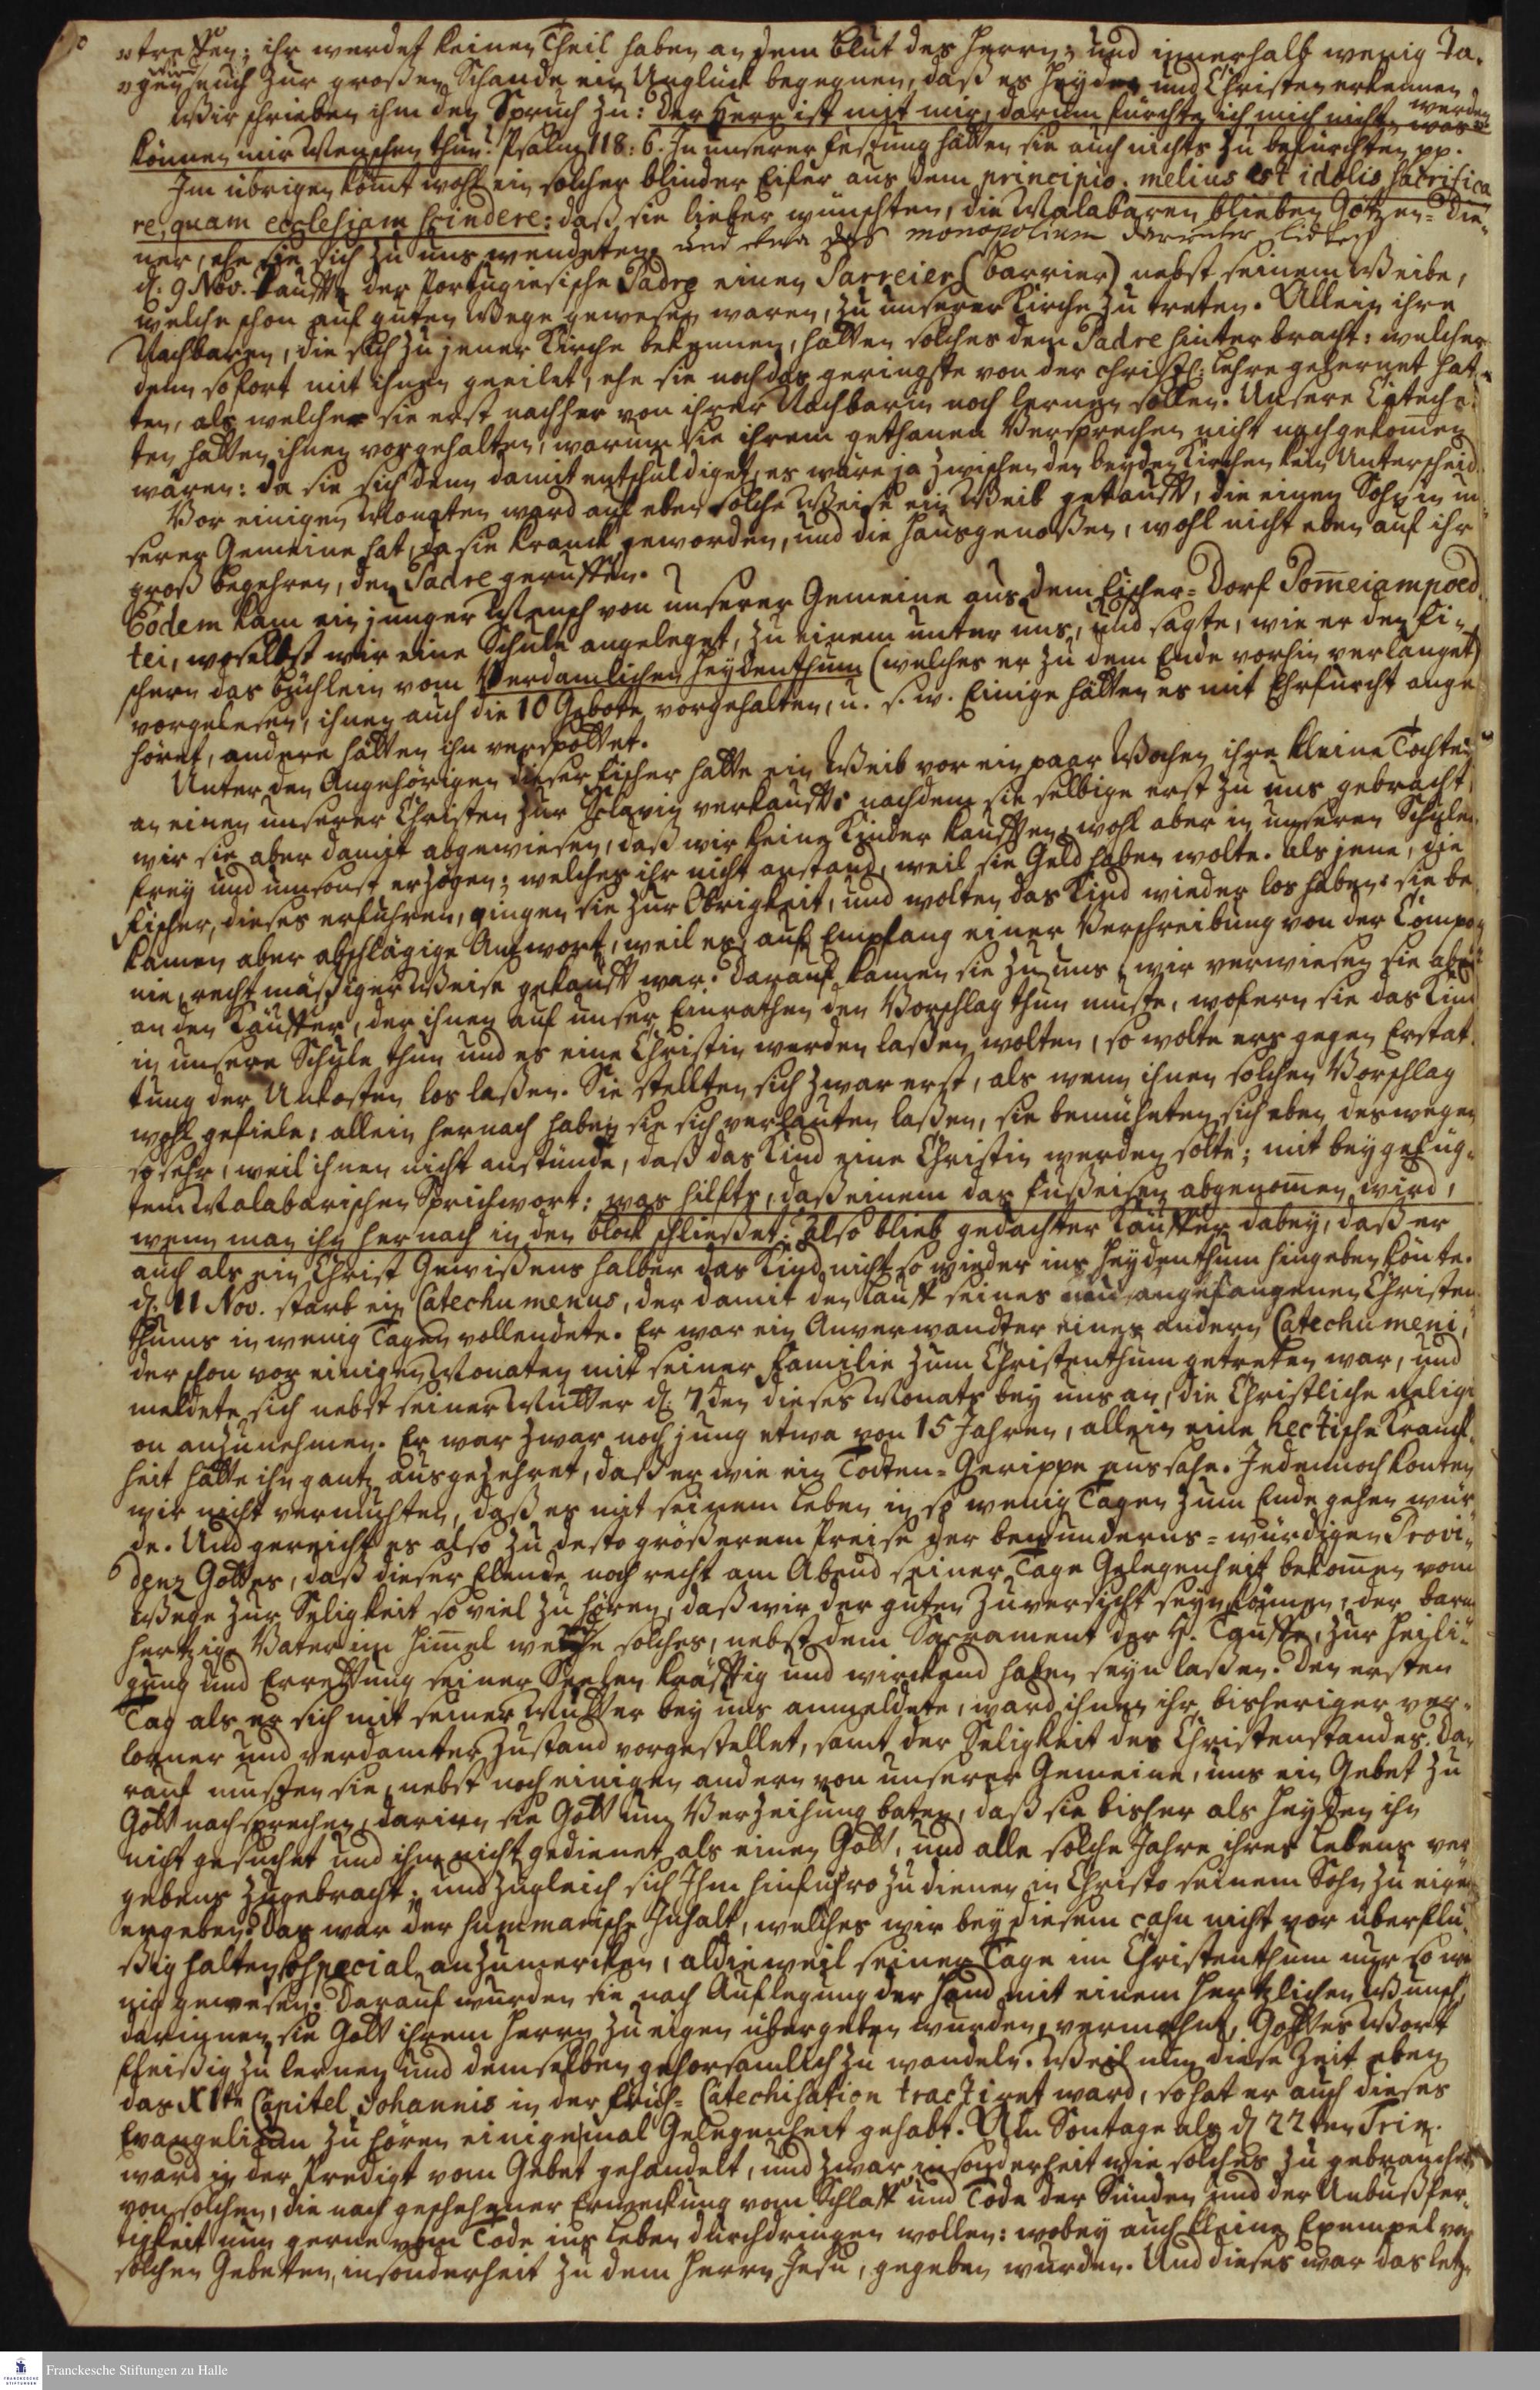 „treffen; ihr werdet keinen Theil haben an dem Blut des Herrn; und innerhalb wenig Ta-
„gen wird euch zur großen Schande ein Unglück begegnen, daß es Heyden und Christen erkennen werden
Wir schrieben ihm den Spruch zu: Der Herr ist mit mir, darum fürchte ich mich nicht, was
können mir Menschen thun? Psalm 118: 6. In unserer Festung hätten sie auch nichts zu befürchten pp.
Im übrigen komt wohl ein solcher blinder Eifer aus dem principio: melius est idolis sacrifica
re, quam ecclesiam scindere: daß sie lieber wünschten, die Malabaren blieben Götzen-Die-
ner, ehe sie sich zu uns wendeten, und etwa das monopolium darunter
d. 9 Nov. tauffte der Portugiesische Padre einen Parreier (barrier) nebst seinem Weibe,
welche schon auf guten Wege gewesen waren, zu unserer Kirche zu treten. Allein ihre
Nachbaren, die sich zu jener Kirche bekennen, hatten solches dem Padre hinterbracht: welcher
denn sofort mit ihnen geeilet, ehe sie noch das geringste von der christl. Lehre gelernet hat-
ten, als welches sie erst nachher von ihrer Nachbarin noch lernen sollen. Unsere Cateche-
ten hatten ihnen vorgehalten, warum sie ihrem gethanen Versprechen nicht nachgekomen
wären: da sie sich denn damit entschuldiget, es wäre ja zwischen den beyden Kirchen kein Unterscheid.
Vor einigen Monaten ward auf eben solche Weise ein Weib getaufft, die einen Sohn in un
serer Gemeine hat, da sie kranck geworden, und die Hausgenoßen, wohl nicht eben auf ihr
groß begehren, den Padre gerufften.
Eodem kam ein junger Mensch von unserer Gemeine aus dem Fischer-Dorf Pomeiampoed
tei, woselbst wir eine Schule angeleget, zu einem unter uns, und sagte, wie er den Fi-
schern das büchlein vom Verdamlichen Heydenthum (welches er zu dem Ende vorhin verlanget)
vorgelesen, ihnen auch die 10 Gebote vorgehalten, u. s. w. Einige hätten es mit Ehrfurcht ange
höret, andere hätten ihn verspottet.
Unter den Angehörigen dieser Fischer hatte ein Weib vor ein paar Wochen ihre kleine Tochter
an einen unserer Christen zur Sclavin verkaufft: nachdem sie selbige erst zu uns gebracht,
wir sie aber damit abgewiesen, daß wir keine Kinder kaufften, wohl aber in unseren Schulen
frey und umsonst erzögen; welches ihr nicht anstand, weil sie Geld haben wolte. Als jene, die
Fischer, dieses erfuhren, gingen sie zur Obrigkeit, und wolten das Kind wieder los haben: sie be
kamen aber abschlägige Antwort, weil es, auf Empfang einer Verschreibung von der Compag
nie, rechtmäßiger Weise gekaufft war. Darauf kamen sie zu uns, wir verwiesen sie aber
an den Käuffer, der ihnen auf unser Einrathen den Vorschlag thun muste, wofern sie das Kind
in unsere Schule thun und es eine Christin werden laßen wolten, so wolte ers gegen Erstat-
tung der Unkosten los laßen. Sie stellten sich zwar erst, als wenn ihnen solcher Vorschlag
wohl gefiele; allein hernach haben sie sich verlauten laßen, sie bemüheten sich eben deswegen
so sehr, weil ihnen nicht anstünde, daß das Kind eine Christin werden solte; mit beygefüg-
tem Malabarischen Sprichwort: was hilfts, daß einem das Fußeisen abgenomen wird,
wenn man ihn hernach in den block schließet? Also blieb gedachter Käuffer dabey, daß er
auch als ein Christ Gewißens halber das Kind nicht so wieder ins Heydenthum hingeben könte.
d. 11 Nov. starb ein Catechumenus, der damit den Lauff seines neu angefangenen Christen
thums in wenig Tagen vollendete. Er war ein Anverwandter eines andern Catechumeni,
der schon vor einigen Monaten mit seiner Familie zum Christenthum getreten war, und
meldete sich nebst seiner Mutter d. 7den dieses Monats bey uns an, die Christliche Religi
on anzunehmen. Er war zwar noch jung etwa von 15 Jahren, allein eine hectische Kranck-
heit hatte ihn gantz ausgezehret, daß er wie ein Todten-Gerippe aussahe. Jedennoch konten
wir nicht vermuthen, daß es mit seinem Leben in so wenig Tagen zum Ende gehen wür
de. Und gereicht es also zu desto größerem Preise der bewunderns-würdigen Provi-
denz Gottes, daß dieser Elende noch recht am Abend seiner Tage Gelegenheit bekomen vom
Wege zur Seligkeit so viel zu hören, daß wir der guten Zuversicht seyn können, der barm
hertzige Vater im Himel werde solches, nebst dem Sacrament der H. Tauffe, zur Heili-
gung und Errettung seiner Seelen kräfftig und wirckend haben seyn laßen. Den ersten
Tag als er sich mit seiner Mutter bey uns anmeldete, ward ihnen ihr bisheriger ver-
lorner und verdamter Zustand vorgestellet, samt der Seligkeit des Christenstandes. Da-
rauf musten sie, nebst noch einigen andern von unserer Gemeine, uns ein Gebet zu
Gott nachsprechen, darinn sie Gott um Verzeihung baten, daß sie bisher als Heyden ihn
nicht gesuchet und ihm nicht gedienet als einen Gott, und alle solche Jahre ihres Lebens ver
gebens zugebracht; und zugleich sich Ihm hinführo zu dienen in Christo seinem Sohn zu eigen
ergeben. Das war der summarische Inhalt, welches wir bey diesem casu nicht vor überflü-
ßig halten so special anzumercken, aldieweil seiner Tage im Christenthum nur so we
nig gewesen. Darauf wurden sie nach Auflegung der Hand mit einem hertzlichen Wunsch,
darinnen sie Gott ihrem Herrn zu eigen übergeben wurden, vermahnt, Gottes Wort
fleißig zu lernen und demselben gehorsamlich zu wandeln. Weil nun diese Zeit eben
das XIte Capitel Johannis in der Früh-Catechisation tractiret ward, so hat er auch dieses
Evangelium zu hören einigemal Gelegenheit gehabt. Am Sontage als d. 22ten Trin.
ward in der Predigt vom Gebet gehandelt, und zwar insonderheit wie solches zu gebrauchen
von solchen, die nach geschehener Erweckung vom Schlaff und Tode der Sünden und der Unbußfer-
tigkeit nun gerne vom Tode ins Leben durchdringen wollen: wobey auch kleine Exempel von
solchen Gebeten, insonderheit zu dem Herrn Jesu, gegeben wurden. Und dieses war das letz-
Franckesche Stiftungen zu Halle